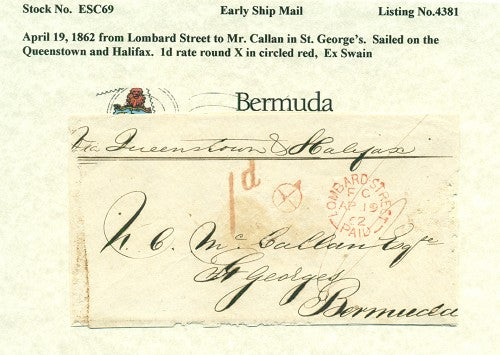 Stock No. ESC69 Early Ship Mail Listing No.4381
April 19, 1862 from Lombard Street to Mr. Callan in St. George's. Sailed on the
Queenstown and Halifax. 1d rate round X in circled red, Ex Swain
Bermuda
Via Queenstown & Halifax
1d
LOMBARD STREET
F C
AP 19
62
PAID
N. C. McCallan Esqre
St Georges
Bermuda